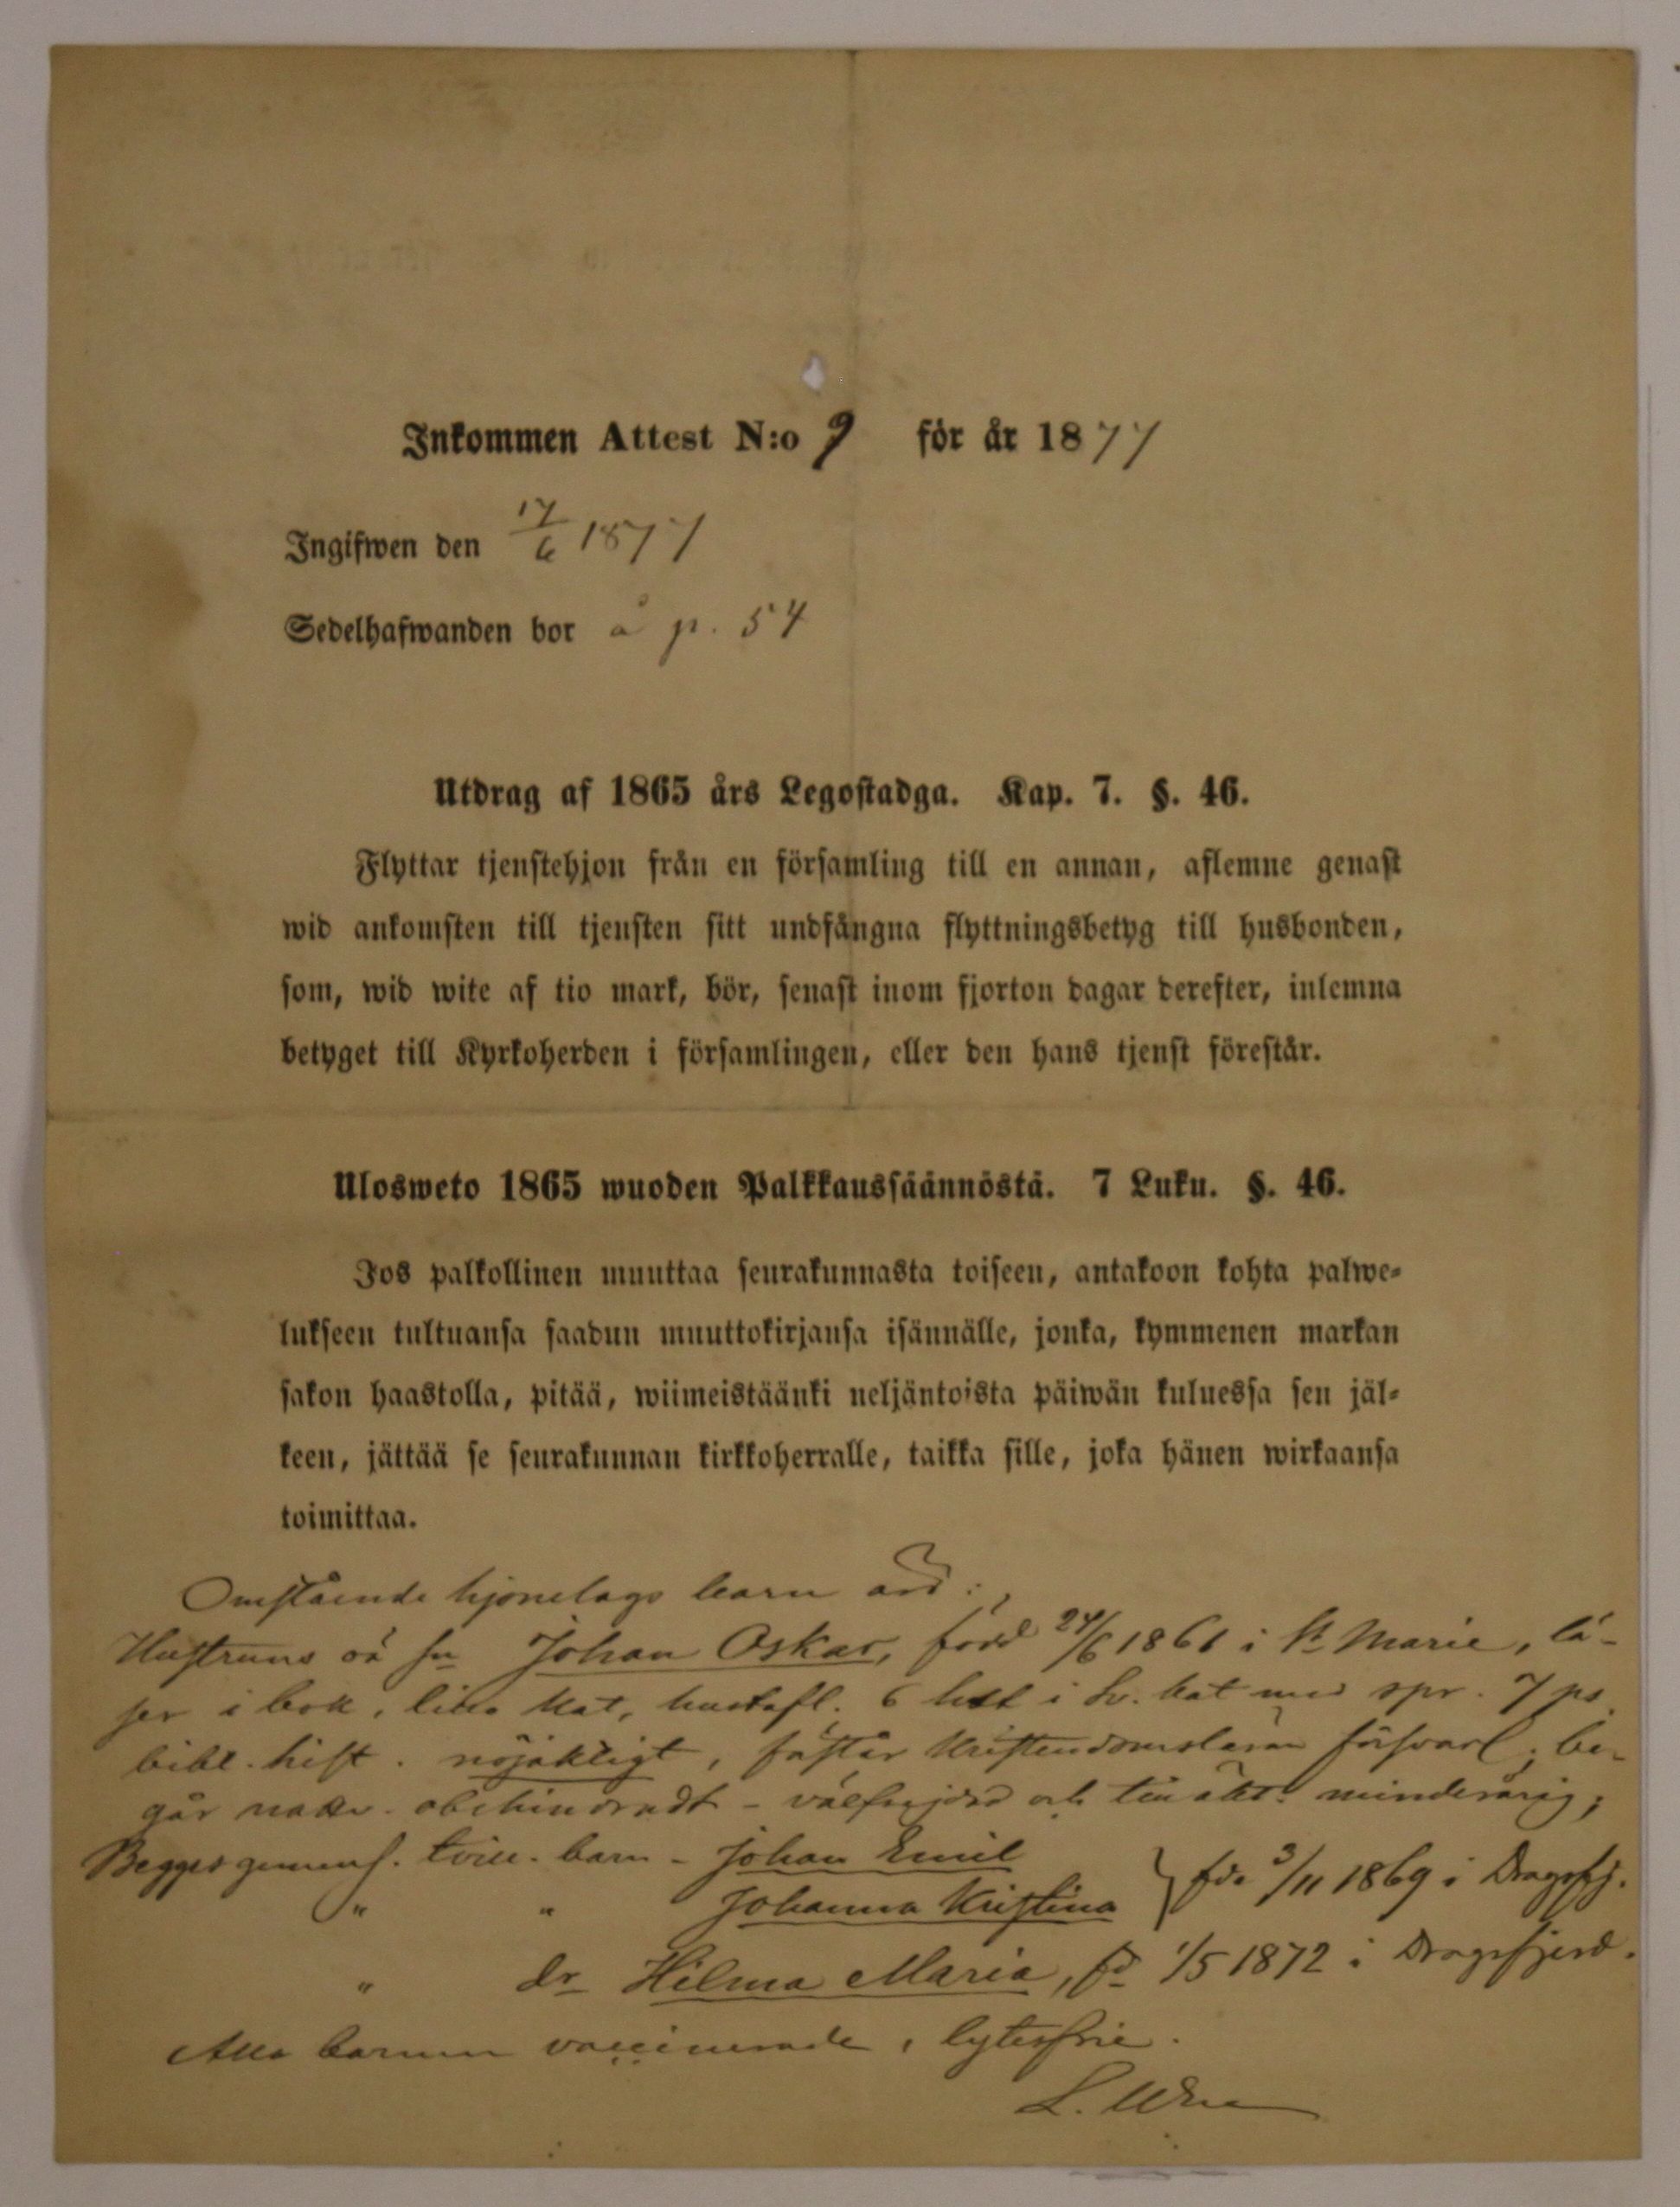 Inkommen Attest N:o 9 för år 1877
Ingifwen den 17/6 1877
Sedelhafwanden bor å p. 54
Utdrag af 1865 års Legostadga. Kap. 7. §. 46.
Flyttar tjenstehjon från en församling till en annan, aflemne genast
wid ankomsten till tjensten sitt undfångna flyttningsbetyg till husbonden,
som, wid wite af tio mark, bör, senast inom fjorton dagar derefter, inlemna
betyget till Kyrkoherden i församlingen, eller den hans tjenst förestår.
Ulosweto 1865 wuoden Palkkaussäännöstä. 7 Luku. §. 46.
Jos palkollinen muuttaa seurakunnasta toiseen, antakoon kohta palwe-
lukseen tultuansa saadun muuttokirjansa isännälle, jonka, kymmenen markan
sakon haastolla, pitää, wiimeistäänki neljäntoista päiwän kuluessa sen jäl-
keen, jättää se seurakunnan kirkkoherralle, taikka sille, joka hänen wirkaansa
toimittaa.
Omstående hjonelags barn äro:
Hustruns oä sn Johan Oskar, född 24/6 1861 i St Marie, lä-
ser i bok, lilla kat, hustafl. 6 i Sv. kat med spr. 7 ps
bibl. hist. nöjaktigt, kristendomsläran försvarl, be-
går nattv. obehindradt - välfrejdad och minderårig;
Begges gemens. tvill. barn - Johan Emil
" " Johanna Kristina } fda 3/11 1869 i Dragsfj.
" dr Hilma Maria, fd 1/5 1872 i Dragsfjerd.
Alla barnen vaccinerade, lytesfrie.
L.